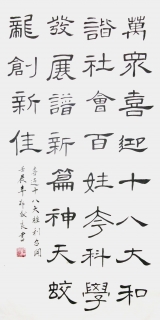 萬眾喜迎十八大和
諧社會百姓夸科學
發展譜新篇神天蛟
龍創新佳
喜迎十八大胜利召開
壬辰年書